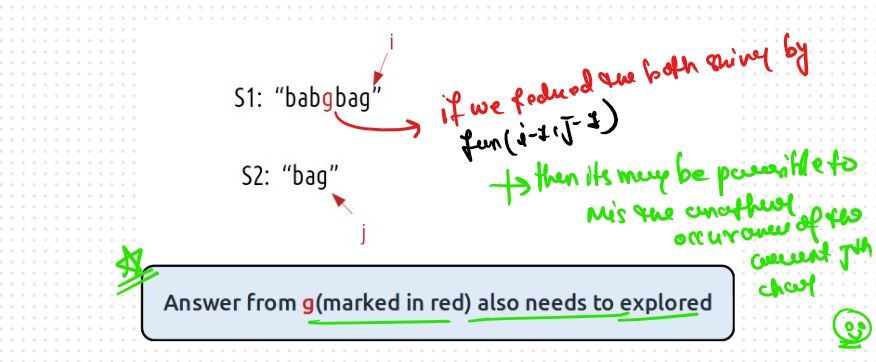 i
S1: “babgbag”
S2: “bag”
j
if we reduced the both string by
fun(i-1, j-1)
→ then its may be possible to
mis the another
occurance of the
current jth
char
Answer from g(marked in red) also needs to explored